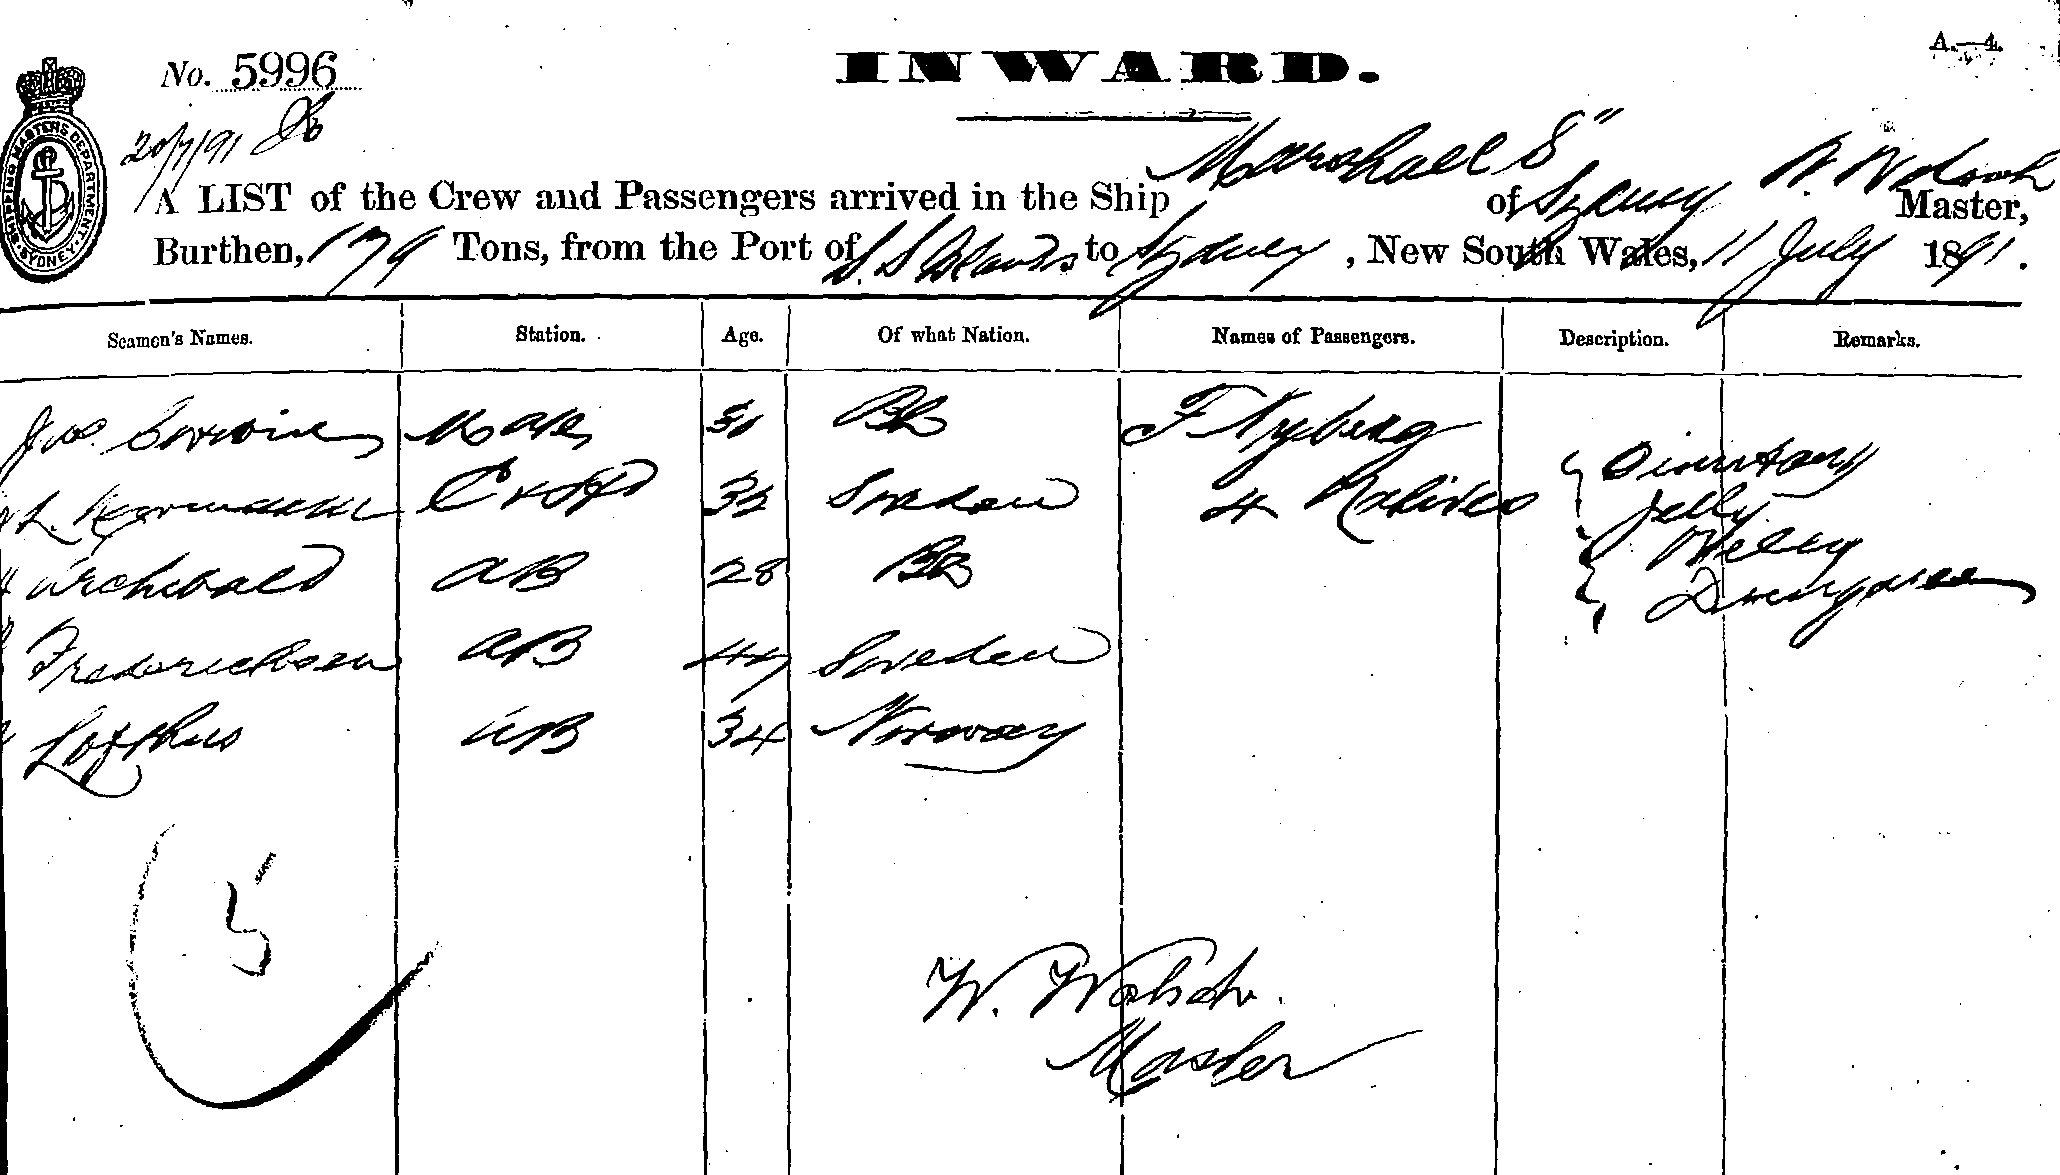 A.—4.
No. 5996
INWARD.
20/7/91
Marshall S"
A LIST of the Crew and Passengers arrived in the Ship of Sydney Master,
Burthen, 179 Tons, from the Port of S. S Islands to Sydney, New South Wales, 11 July 1891.
SHIPPING MASTERS DEPARTMENT SYDNEY
Seamen's Names. Station. Age. Of what Nation. Names of Passengers. Description. Remarks.
Jas. Mate Br F Nyberg
L. Sweden 4 Natives
Jelly
Archibald AB 28 Br Willy
Frederickson AB 44 Sweden
Lofthus AB 34 Norway
5
W.
Master